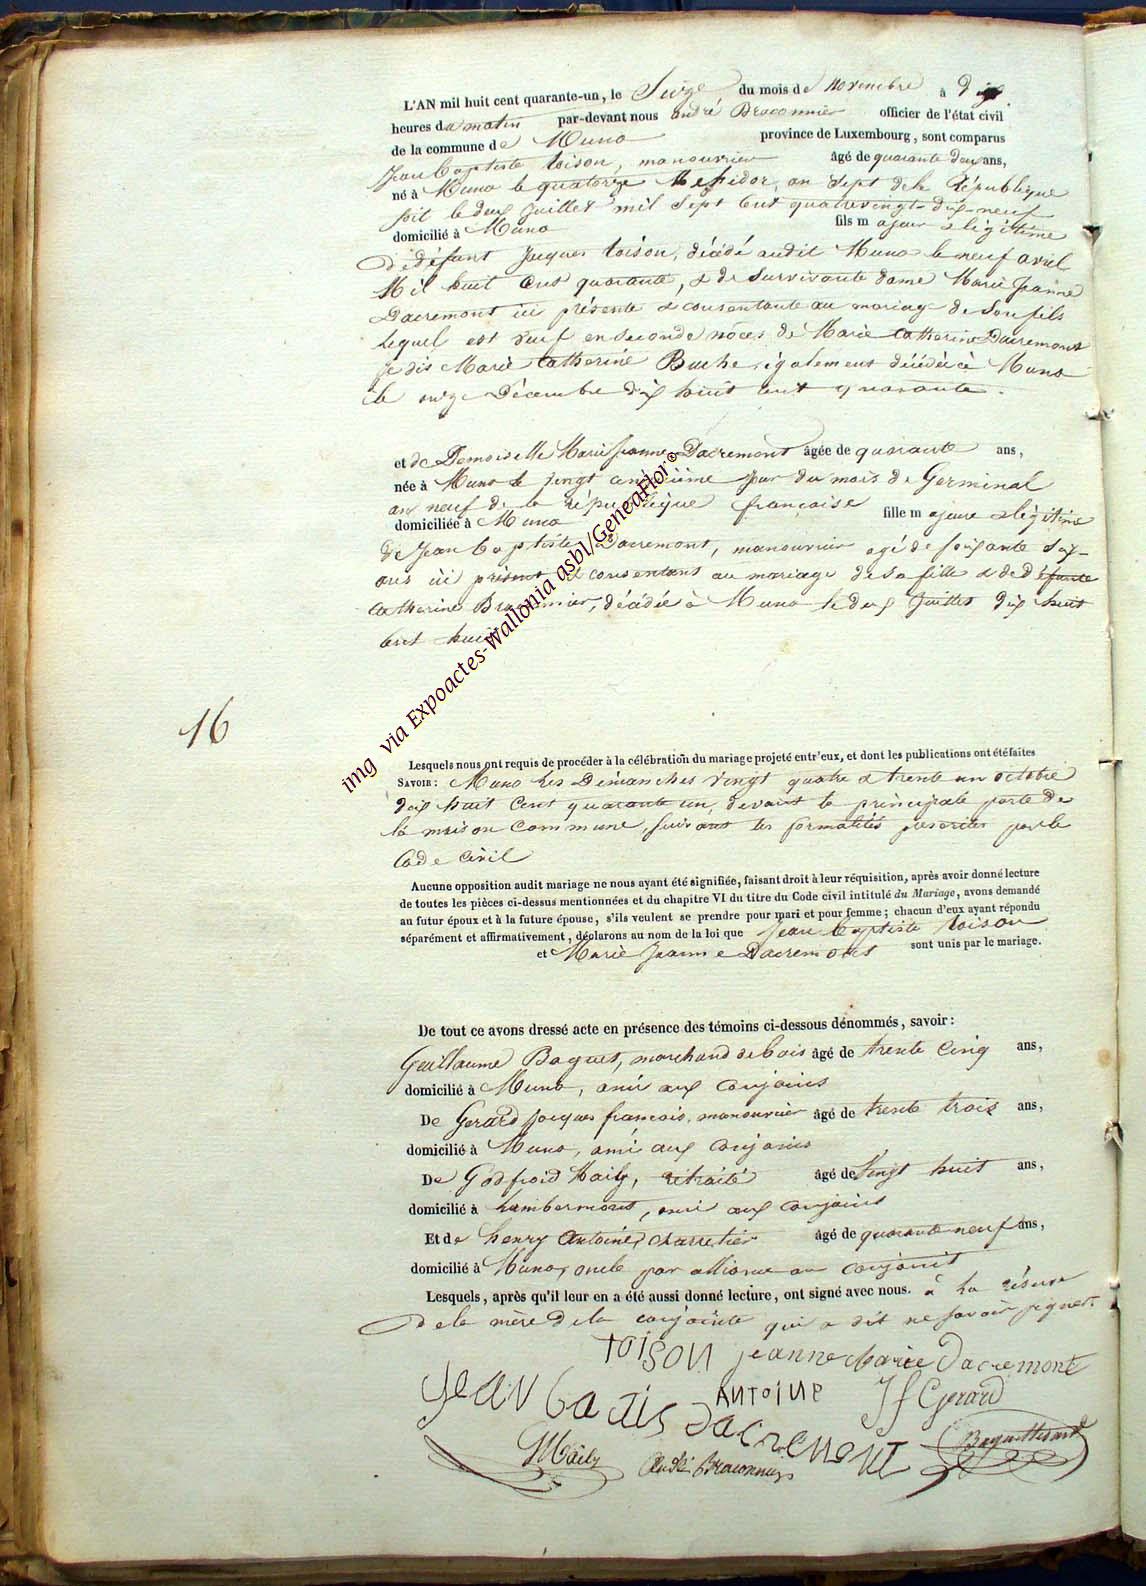 L'AN mil huit cent quarante-un, le Seize du mois de novembre à dix
heures du matin par-devant nous andré Braconnier officier de l'état civil
de la commune de Muno province de Luxembourg, sont comparus
Jean baptiste toison, manouvrier âgé de quarante deux ans,
né à Muno le quatorze Messidor, an sept de la République
soit le deux juillet mil sept cent quatrevingt-dix-neuf
domicilié à Muno fils majeur & légitime
de défunt Jacques toison, décédé audit Muno le neuf avril
Mil huit Cent quarante, & de survivante dame Marie Jeanne
Dacremont ici présente & consentante au mariage de Son fils
lequel est veuf en seconde nôces de Marie Catherine Dacremont
je dis Marie Catherine Buche également décédée à Muno
le onze Décembre dix huit cent quarante.
et de Demoiselle Marie Jeanne Dacremont âgée de quarante ans,
née à Muno le vingt cinquième jour du mois de Germinal
an neuf de la république française
domiciliée à Muno fille majeure & légitime
de Jean baptiste Dacremont, manouvrier agé de soixante dix
ans ici présent & consentant au mariage de sa fille & de défunte
Catherine Braconnier, décédée à Muno le deux Juillet dix huit
cent huit
16
Lesquels nous ont requis de procéder à la célébration du mariage projeté entr'eux, et dont les publications ont été faites
SAVOIR : Muno les Dimanches vingt quatre & trente un octobre
dix huit Cent quarante un, devant la principale porte de
la maison Commune, suivant les formalités prescrites par le
Code civil
Aucune opposition audit mariage ne nous ayant été signifiée, faisant droit à leur réquisition, après avoir donné lecture
de toutes les pièces ci-dessus mentionnées et du chapitre VI du titre du Code civil intitulé du Mariage, avons demandé
au futur époux et à la future épouse, s'ils veulent se prendre pour mari et pour femme ; chacun d'eux ayant répondu
séparément et affirmativement, déclarons au nom de la loi que Jean baptiste toison
et Marie Jeanne Dacremont sont unis par le mariage.
De tout ce avons dressé acte en présence des témoins ci-dessous dénommés, savoir :
Guillaume Baguet, marchand de bois âgé de trente Cinq ans,
domicilié à Muno, ami aux conjoins
De Gerard Jacques francois, manouvrier âgé de trente trois ans,
domicilié à Muno, ami aux Conjoins
De Godfroid Maily, retraité âgé de vingt huit ans,
domicilié à Lambermont, ami aux conjoins
Et de henry Antoine, charretier âgé de quarante neuf ans,
domicilié à Muno, oncle par alliance au conjoint
Lesquels, après qu'il leur en a été aussi donné lecture, ont signé avec nous. à La réserve
de la mère de la conjointe qui a dit ne savoir signer.
TOISON jeanne Marie Dacremont
JEAN baptis DACREMONT ANTOINE Jf Gerard
Maily André Braconnier
img via Expoactes-Wallonia asbl/GeneaFlor©